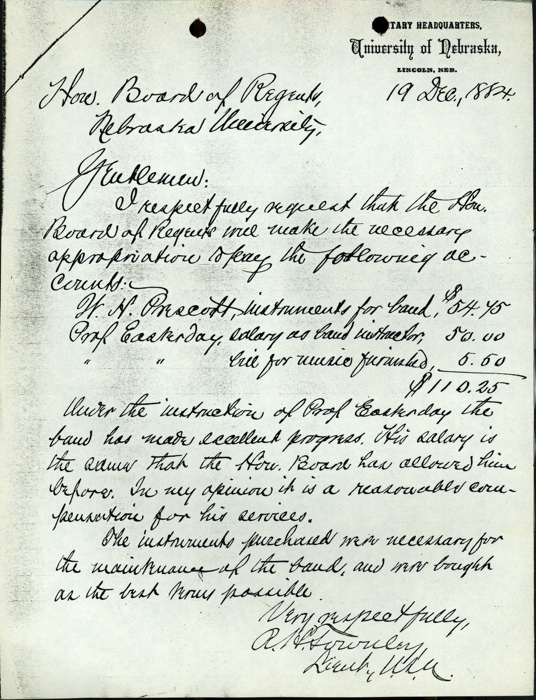 ITARY HEADQUARTERS,
University of Nebraska,
LINCOLN, NEB.
19 Dec., 1884.
Hon. Board of Regents,
Nebraska University,
Gentlemen:
I respectfully request that the Hon.
Board of Regents will make the necessary
appropriation to pay the following ac-
counts:-
W. N. Prescott, instruments for band, $54.75
Prof Easterday, salary as band instructor, 50.00
" " bill for music furnished, 5.50
$110.25
Under the instruction of Prof Easterday the
band has made excellent progress. His salary is
the same that the Hon. Board has allowed him
before. In my opinion it is a reasonable com-
pensation for his services.
The instruments purchased were necessary for
the maintenance of the band, and were bought
on the best terms possible.
Very respectfully,
Lieut., U.S.A.